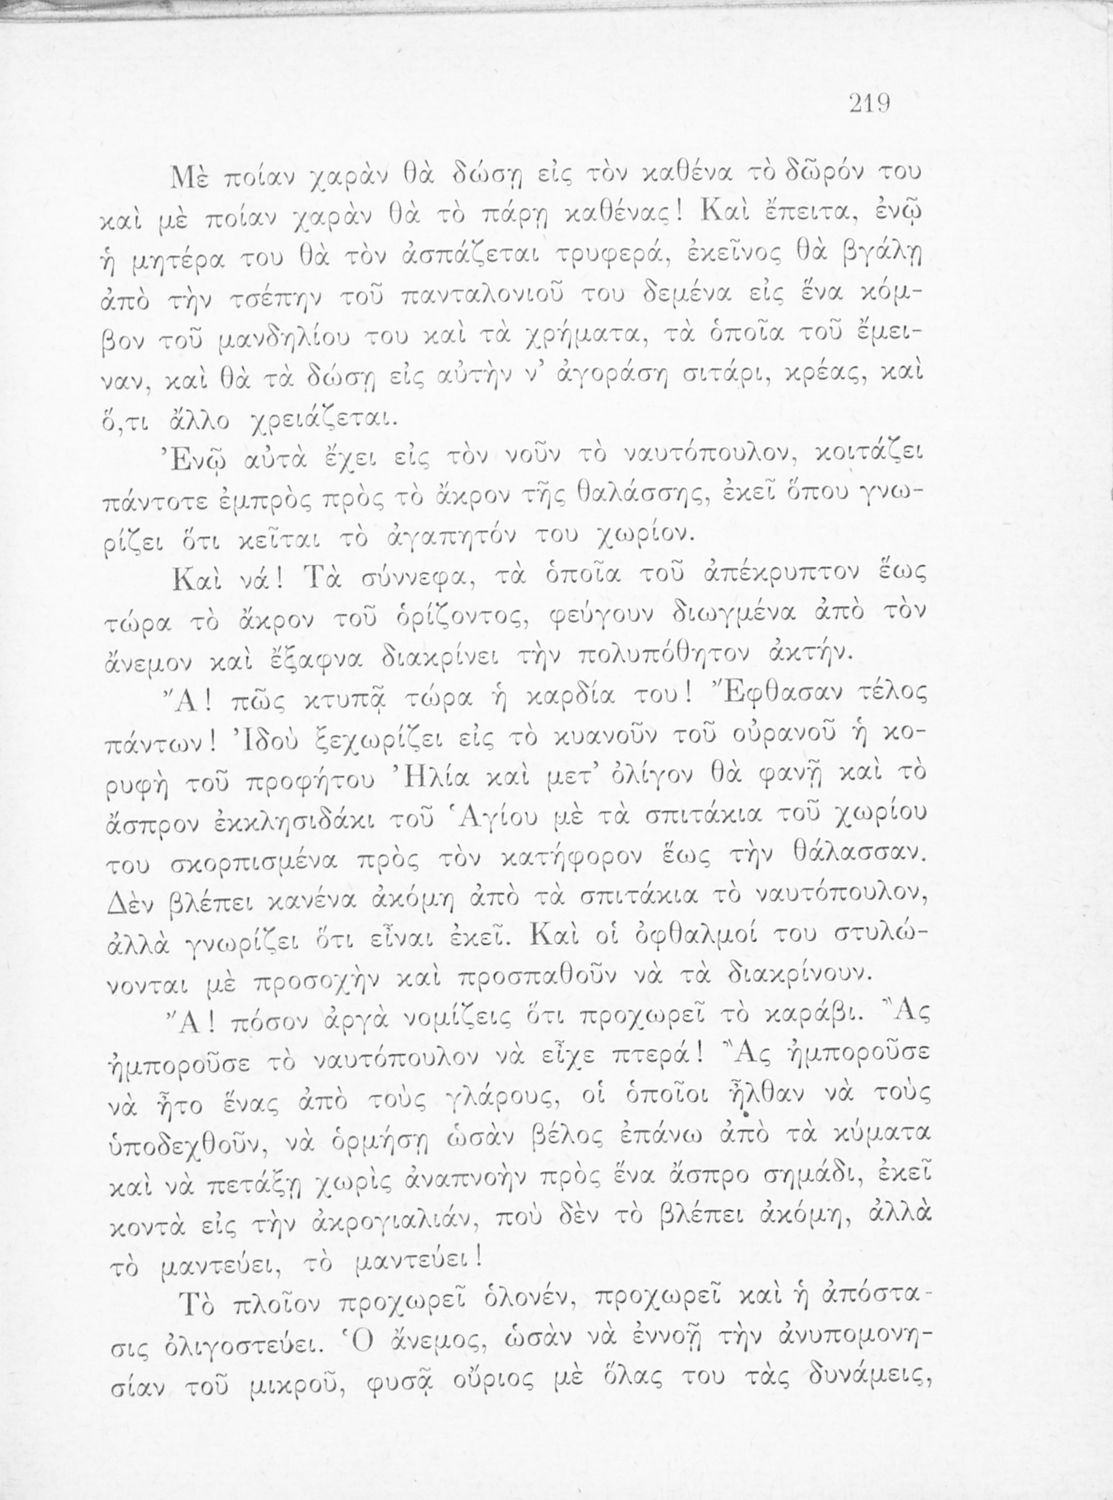 219
Μὲ ποίαν χαρὰν θὰ δώσῃ εἰς τὸν καθένα τὸ δῶρόν του
καὶ μὲ ποίαν χαρὰν θὰ τὸ πάρῃ καθένας! Καὶ ἔπειτα, ἐνῷ
ἡ μητέρα του θὰ τὸν ἀσπάζεται τρυφερά, ἐκεῖνος θὰ βγάλῃ
ἀπὸ τὴν τσέπην τοῦ πανταλονιοῦ του δεμένα εἰς ἕνα κόμ-
βον τοῦ μανδηλίου του καὶ τὰ χρήματα, τὰ ὁποῖα τοῦ ἔμει-
ναν, καὶ θὰ τὰ δώσῃ εἰς αὐτὴν ν’ ἀγοράση σιτάρι, κρέας, καὶ
ὅ,τι ἄλλο χρειάζεται.
Ἐνῷ αὐτὰ ἔχει εἰς τὸν νοῦν τὸ ναυτόπουλον, κοιτάζει
πάντοτε ἐμπρὸς πρὸς τὸ ἄκρον τῆς θαλάσσης, ἐκεῖ ὅπου γνω-
ρίζει ὅτι κεῖται τὸ ἀγαπητόν του χωρίον.
Καὶ νά! Τὰ σύννεφα, τὰ ὁποῖα τοῦ ἀπέκρυπτον ἕως
τώρα τὸ ἄκρον τοῦ ὁρίζοντος, φεύγουν διωγμένα ἀπὸ τὸν
ἄνεμον καὶ ἔξαφνα διακρίνει τὴν πολυπόθητον ἀκτήν.
Ἄ! πῶς κτυπᾷ τώρα ἡ καρδία του! Ἔφθασαν τέλος
πάντων! Ἰδοὺ ξεχωρίζει εἰς τὸ κυανοῦν τοῦ οὐρανοῦ ἡ κο-
ρυφὴ τοῦ προφήτου Ἠλία καὶ μετ’ ὀλίγον θὰ φανῇ καὶ τὸ
ἄσπρον ἐκκλησιδάκι τοῦ Ἁγίου μὲ τὰ σπιτάκια τοῦ χωρίου
του σκορπισμένα πρὸς τὸν κατήφορον ἕως τὴν θάλασσαν.
Δὲν βλέπει κανένα ἀκόμη ἀπὸ τὰ σπιτάκια τὸ ναυτόπουλον,
ἀλλὰ γνωρίζει ὅτι εἶναι ἐκεῖ. Καὶ οἱ ὀφθαλμοί του στυλώ-
νονται μὲ προσοχὴν καὶ προσπαθοῦν νὰ τὰ διακρίνουν.
Ἄ! πόσον ἀργὰ νομίζεις ὅτι προχωρεῖ τὸ καράβι. Ἂς
ἠμποροῦσε τὸ ναυτόπουλον νὰ εἶχε πτερά! Ἂς ἠμποροῦσε
νὰ ἦτο ἕνας ἀπὸ τοὺς γλάρους, οἱ ὁποῖοι ἦλθαν νὰ τοὺς
ὑποδεχθοῦν, νὰ ὁρμήσῃ ὡσὰν βέλος ἐπάνω ἀπὸ τὰ κύματα
καὶ νὰ πετάξῃ χωρὶς ἀναπνοὴν πρὸς ἕνα ἄσπρο σημάδι, ἐκεῖ
κοντὰ εἰς τὴν ἀκρογιαλιάν, ποὺ δὲν τὸ βλέπει ἀκόμη, ἀλλὰ
τὸ μαντεύει, τὸ μαντεύει!
Τὸ πλοῖον προχωρεῖ ὁλονέν, προχωρεῖ καὶ ἡ ἀπόστα-
σις ὀλιγοστεύει. Ὁ ἄνεμος, ὡσὰν νὰ ἐννοῇ τὴν ἀνυπομονη-
σίαν τοῦ μικροῦ, φυσᾷ οὔριος μὲ ὅλας του τὰς δυνάμεις,